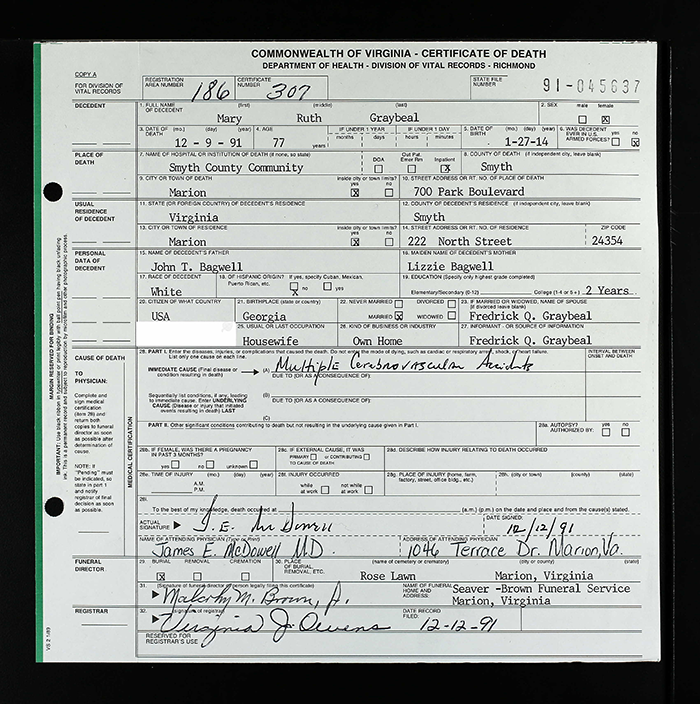 COMMONWEALTH OF VIRGINIA - CERTIFICATE OF DEATH
DEPARTMENT OF HEALTH - DIVISION OF VITAL RECORDS - RICHMOND
COPY A
FOR DIVISION OF VITAL RECORDS
REGISTRATION AREA NUMBER 186 CERTIFICATE NUMBER 307 STATE FILE NUMBER 91-045637
DECEDENT
1. FULL NAME OF DECEDENT (first) (middle) (last) 2. SEX male female
Mary Ruth Graybeal X
3. DATE OF DEATH (mo.) (day) (year) 4. AGE IF UNDER 1 YEAR IF UNDER 1 DAY 5. DATE OF BIRTH (mo.) (day) (year) 6. WAS DECEDENT EVER IN U.S. ARMED FORCES? yes no
months days hours minutes
12 - 9 - 91 77 years 1-27-14 X
PLACE OF DEATH
7. NAME OF HOSPITAL OR INSTITUTION OF DEATH (if none, so state) DOA Out Pat. Emer Rm Inpatient 8. COUNTY OF DEATH (if independent city, leave blank)
Smyth County Community X Smyth
9. CITY OR TOWN OF DEATH inside city or town limits? yes no 10. STREET ADDRESS OR RT. NO. OF PLACE OF DEATH
Marion X 700 Park Boulevard
USUAL RESIDENCE OF DECEDENT
11. STATE (OR FOREIGN COUNTRY) OF DECEDENT'S RESIDENCE 12. COUNTY OF DECEDENT'S RESIDENCE (if independent city, leave blank)
Virginia Smyth
13. CITY OR TOWN OF RESIDENCE inside city or town limits? yes no 14. STREET ADDRESS OR RT. NO. OF RESIDENCE ZIP CODE
Marion X 222 North Street 24354
PERSONAL DATA OF DECEDENT
15. NAME OF DECEDENT'S FATHER 16. MAIDEN NAME OF DECEDENT'S MOTHER
John T. Bagwell Lizzie Bagwell
17. RACE OF DECEDENT 18. OF HISPANIC ORIGIN? If yes, specify Cuban, Mexican, Puerto Rican, etc. 19. EDUCATION (Specify only highest grade completed)
White X no yes Elementary/Secondary (0-12) College (1-4 or 5+) 2 Years
20. CITIZEN OF WHAT COUNTRY 21. BIRTHPLACE (state or country) 22. NEVER MARRIED DIVORCED 23. IF MARRIED OR WIDOWED, NAME OF SPOUSE (if divorced leave blank)
USA Georgia MARRIED X WIDOWED Fredrick Q. Graybeal
25. USUAL OR LAST OCCUPATION 26. KIND OF BUSINESS OR INDUSTRY 27. INFORMANT - OR SOURCE OF INFORMATION
Housewife Own Home Fredrick Q. Graybeal
MARGIN RESERVED FOR BINDING
CAUSE OF DEATH
TO PHYSICIAN:
Complete and sign medical certification (item 28) and return both copies to funeral director as soon as possible after determination of cause.
NOTE: If "Pending" must be indicated, so state in part 1 and notify registrar of final decision as soon as possible.
MEDICAL CERTIFICATION
28. PART I. Enter the diseases, injuries, or complications that caused the death. Do not enter the mode of dying, such as cardiac or respiratory arrest, shock, or heart failure. INTERVAL BETWEEN ONSET AND DEATH
List only one cause on each line.
IMMEDIATE CAUSE (Final disease or condition resulting in death) (A) Multiple Cerebrovascular Accidents
DUE TO (OR AS A CONSEQUENCE OF):
Sequentially list conditions, if any, leading to immediate cause. Enter UNDERLYING CAUSE (Disease or injury that initiated events resulting in death) LAST
(B)
DUE TO (OR AS A CONSEQUENCE OF):
(C)
PART II. Other significant conditions contributing to death but not resulting in the underlying cause given in Part I. 28a. AUTOPSY? AUTHORIZED BY: yes no
28b. IF FEMALE, WAS THERE A PREGNANCY IN PAST 3 MONTHS? yes no unknown
28c. IF EXTERNAL CAUSE, IT WAS PRIMARY or CONTRIBUTING TO CAUSE OF DEATH
28d. DESCRIBE HOW INJURY RELATING TO DEATH OCCURRED
28e. TIME OF INJURY (mo.) (day) (year) A.M. P.M. 28f. INJURY OCCURRED while at work not while at work 28g. PLACE OF INJURY (home, farm, factory, street, office bldg., etc.) 28h. (city or town) (county) (state)
28i.
To the best of my knowledge, death occurred at (a.m.) (p.m.) on the date and place and from the cause(s) stated.
ACTUAL SIGNATURE J. E. McDowell DATE SIGNED: 12/12/91
NAME OF ATTENDING PHYSICIAN (Type or Print) ADDRESS OF ATTENDING PHYSICIAN
James E. McDowell M.D. 1046 Terrace Dr. Marion, Va.
FUNERAL DIRECTOR
29. BURIAL REMOVAL CREMATION 30. PLACE OF BURIAL, REMOVAL, ETC. (name of cemetery or crematory) (city or county) (state)
X Rose Lawn Marion, Virginia
31. (Signature of funeral director or person legally filing this certificate) NAME OF FUNERAL HOME AND ADDRESS:
Malcolm M. Brown, Jr. Seaver -Brown Funeral Service
Marion, Virginia
REGISTRAR
32. (signature of registrar) DATE RECORD FILED:
Virginia J. Owens 12-12-91
RESERVED FOR REGISTRAR'S USE
VS 2 1/89